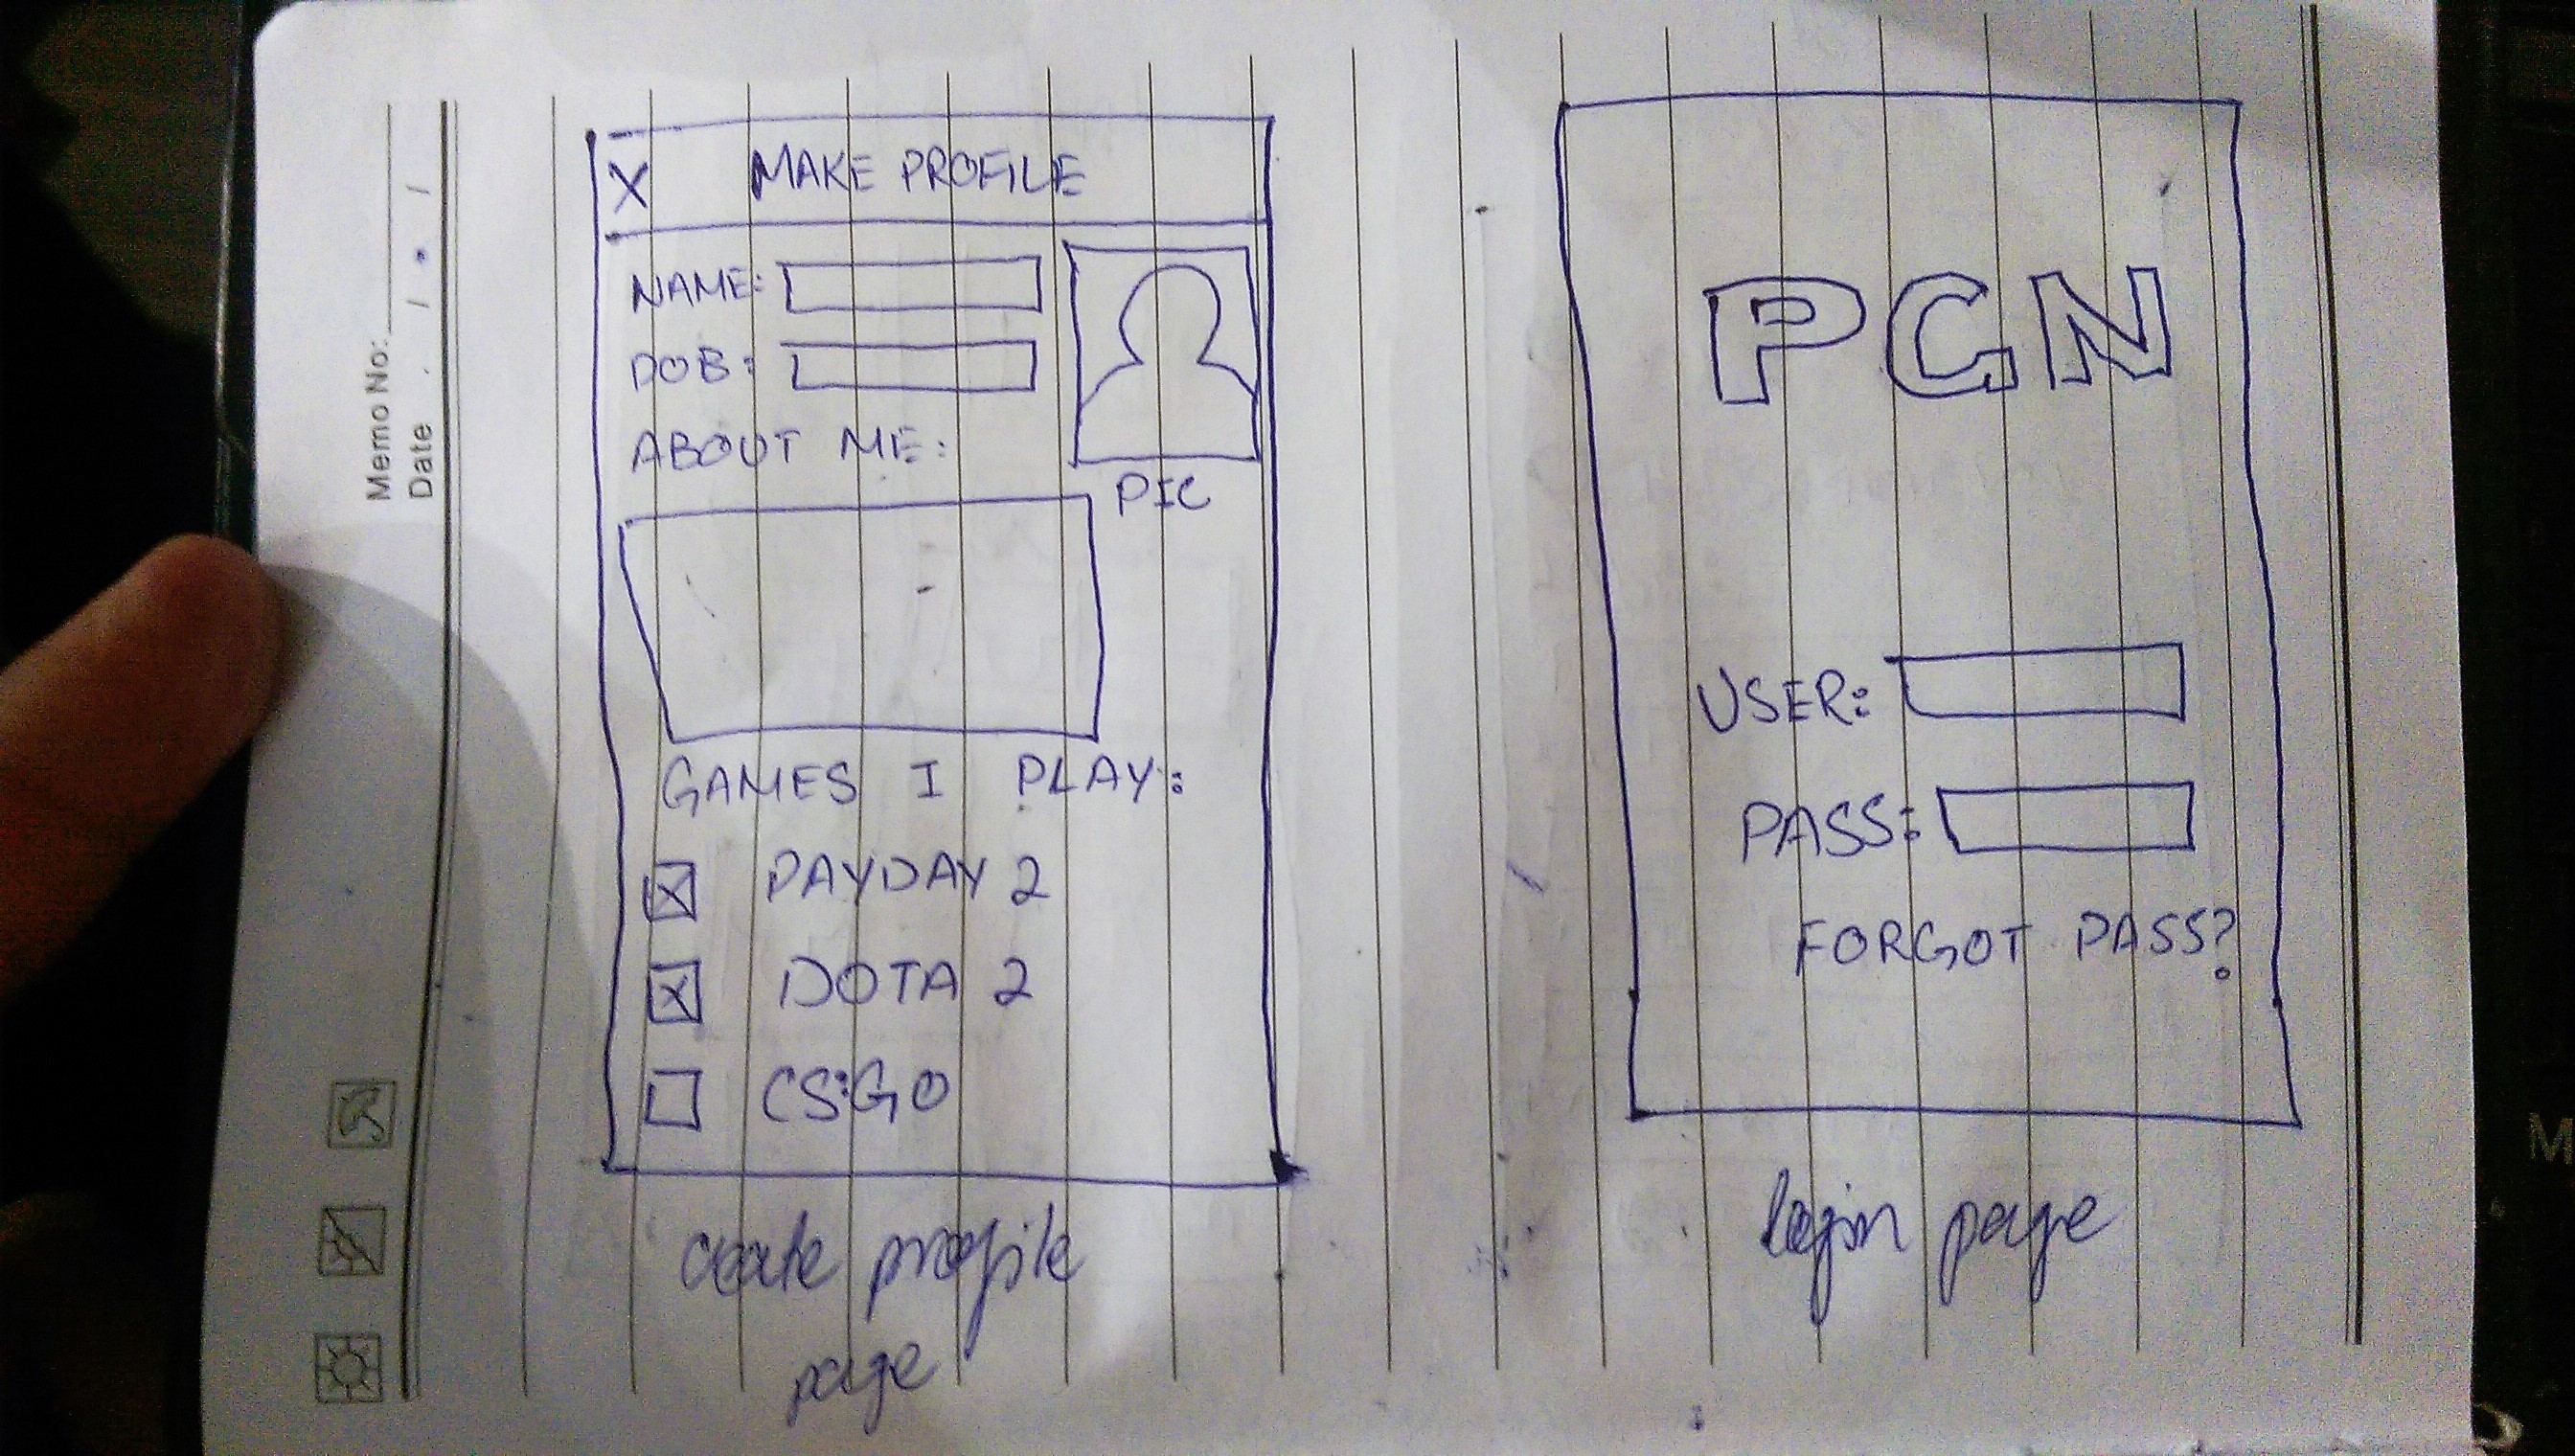 Memo No:
Date
X MAKE PROFILE
NAME:
DOB:
ABOUT ME:
PIC
GAMES I PLAY:
PAYDAY 2
DOTA 2
CS:GO
create profile
page
PGN
USER:
PASS:
FORGOT PASS?
login page
M